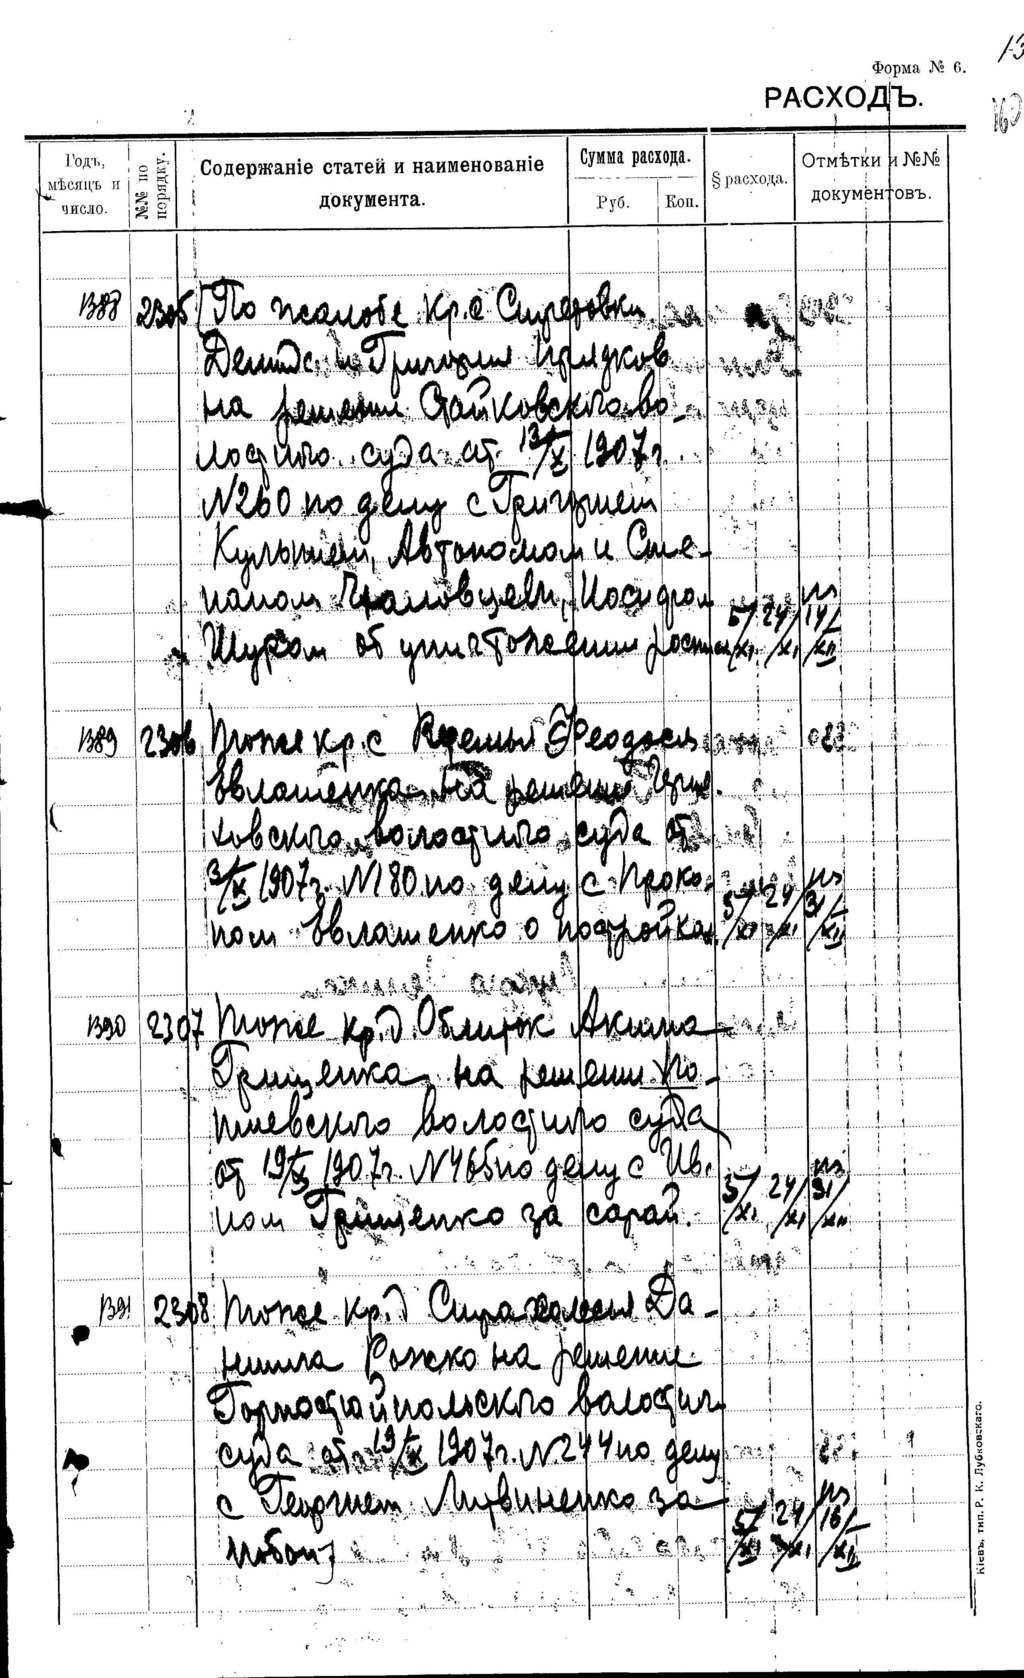 13
Форма № 6.
160
РАСХОДЪ.
Годъ, мѣсяцъ и число.
№№ по порядку.
Содержаніе статей и наименованіе документа.
Сумма расхода.
Руб.
Коп.
§ расхода.
Отмѣтки и №№ документовъ.
1388 2305 По жалобе кр. с
и Григория
на решение Стайковского во-
лостного суда от 13/X 1907 г.
N260 по делу с Григорием
Автономом и Сте-
паном
об уничтожении 5/XI 24/XI 14/XII
1389 2306 тоже кр. с Феодосия
на решение
ховского волостного суда от
3/X 1907 г. N180 по делу с Проко-
пом о постройках 5/XI 24/XI 31/XII
1390 2307 тоже кр. д. Облиток Акима
Грищенка на решение Ко-
волостного суда
от 19/X 1907 г. N465 по делу с Ив.
ном Грищенко за сарай. 5/XI 24/XI 31/XII
1391 2308 тоже кр. д Страхолесья Да-
ниила Рожко на решение
Горностайпольского волостн.
суда от 19/X 1907 г. N244 по делу
с Георгием Литвиненко за
побои 5/XI 24/XI 16/XII
Кіевъ, тип. Р. К. Лубковскаго.